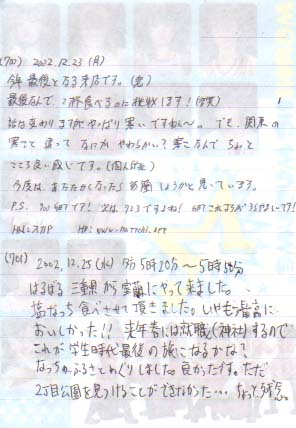 (700) 2002.12.23(月)
今年最後となる来店です。(悲)
最後なんで、2杯食べるのに挑戦します!(笑)
話は変わりますがやっぱり寒いですねぇ~。でも、関東の
寒さと違ってなにか やわらかい?寒さなんで ちょっと
こころ良い感じです。(個人的に)
今度は、あたたかくなったら 訪問しようかと思っています。
P.S. 700 GETです! 次は、723ですよね!
HN:スガP HP:www.
(701) 2002,12,25(水) 夕方5時20分~5時50分
はるばる三重県から室蘭にやって来ました。
塩なっち食べさせて頂きました。いやもう最高に
おいしかった!! 来年春には就職(神社)するので
これが学生時代最後の旅になるかな?
なっちのふるさとめぐりしました。良かったです。ただ
2丁目公園を見つけることができなかった… ちょっと残念。